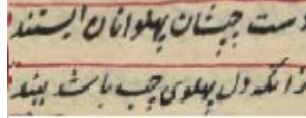 دست چپشان پهلوانان ایستند
زانکه دل پهلوی چپ باشد ببند